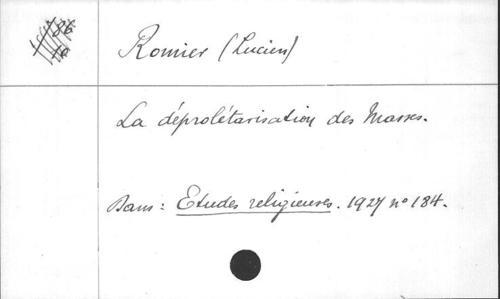 Romier (Lucien)
La déprolétarisation des Masses.
Dans: Etudes religieuses. 1927 nº 184.